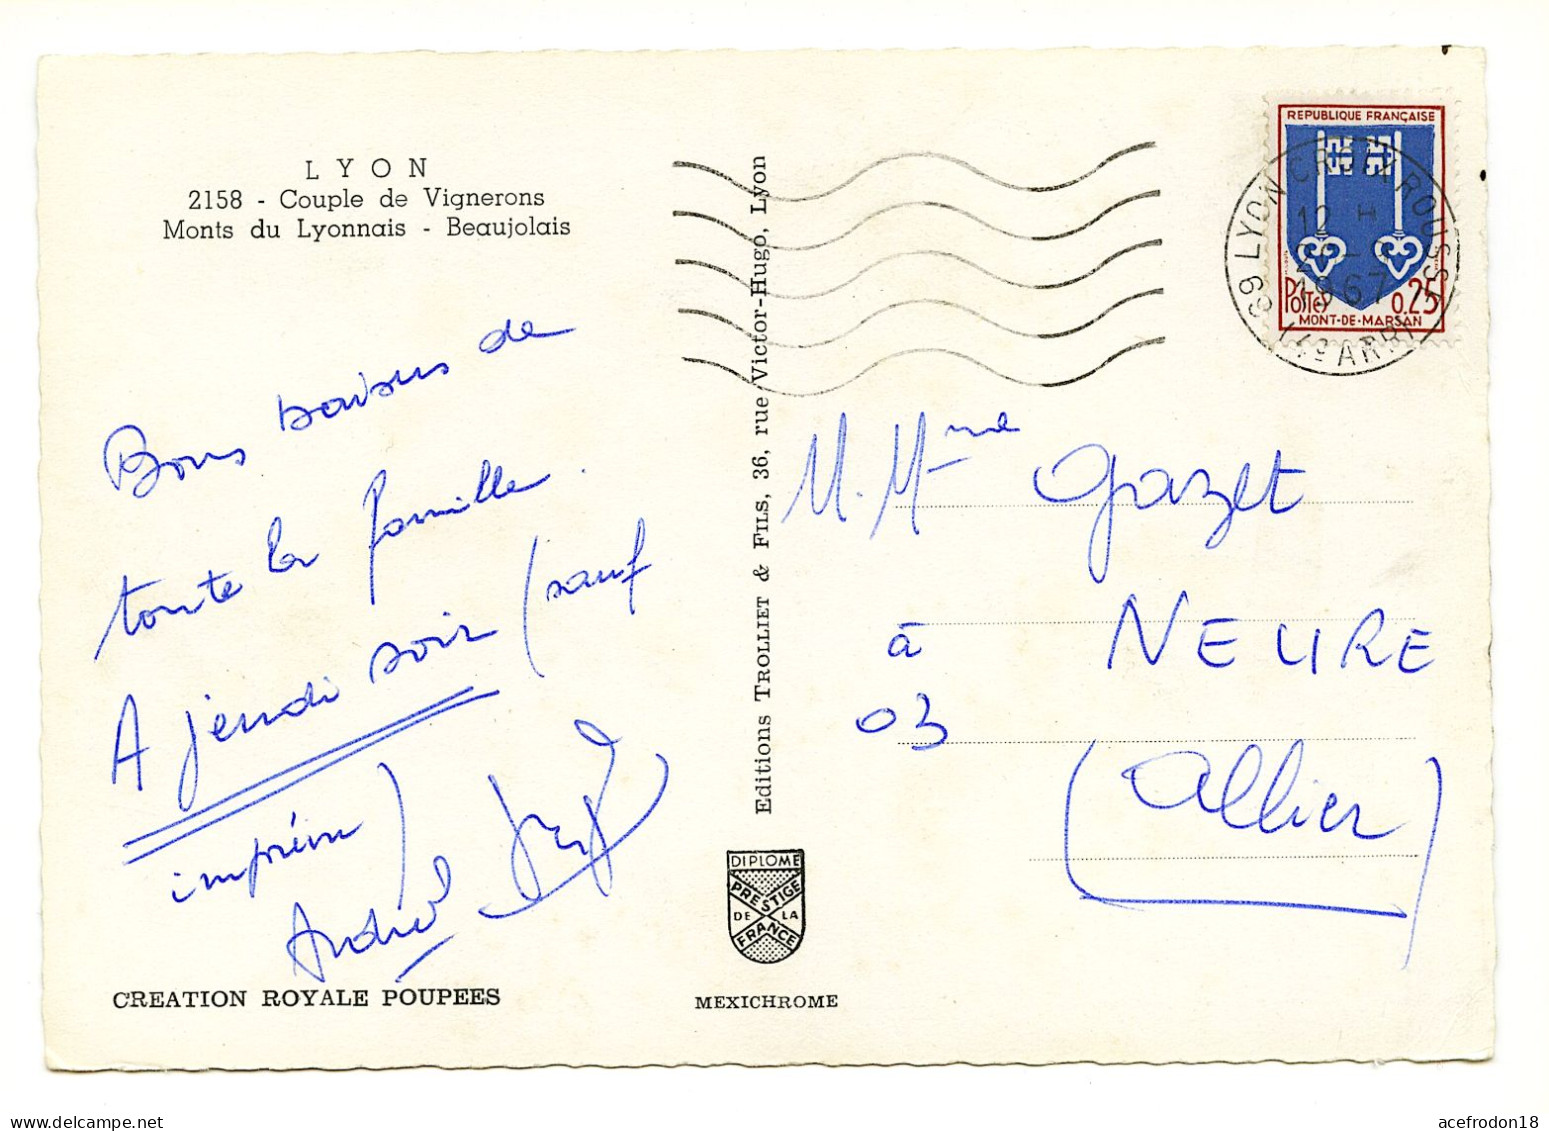 LYON
2158 - Couple de Vignerons
Monts du Lyonnais - Beaujolais
Bons baisers de
toute la famille.
A jeudi soir (sauf
imprévu)
André
CREATION ROYALE POUPEES
Editions TROLLIET & FILS, 36, rue Victor-Hugo, Lyon
DIPLOME
PRESTIGE
DE LA
FRANCE
MEXICHROME
REPUBLIQUE FRANÇAISE
Postes 0,25
MONT-DE-MARSAN
69 LYON CROIX ROUSSE (4e ARRt)
12 H
1967
M. Mme Gazet
à NEURE
03
(Allier)
acefrodon18